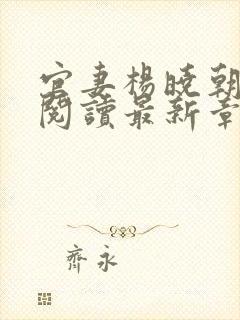 官妻楊曉朝
閱讀最新章
齊永